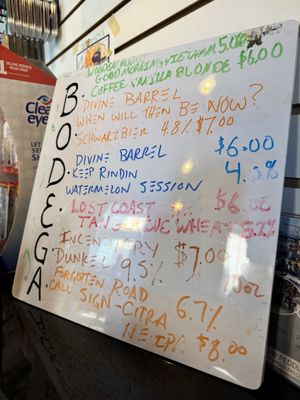 WOODEN ROBOT
GOOD MORNING VIETNAM 5.0%
COFFEE VANILLA BLONDE $6.00
DIVINE BARREL
WHEN WILL THEN BE NOW?
SCHWARZBIER 4.8% $7.00
DIVINE BARREL $6.00
KEEP RINDIN 4.3%
WATERMELON SESSION
LOST COAST $6.00
TANGERINE WHEAT 5.2%
INCENDIARY $7.00
DUNKEL 9.5% 10oz
FORGOTTEN ROAD
CALL SIGN-CITRA 6.7%
NE IPA $8.00
BODEGA
Clear
eyes